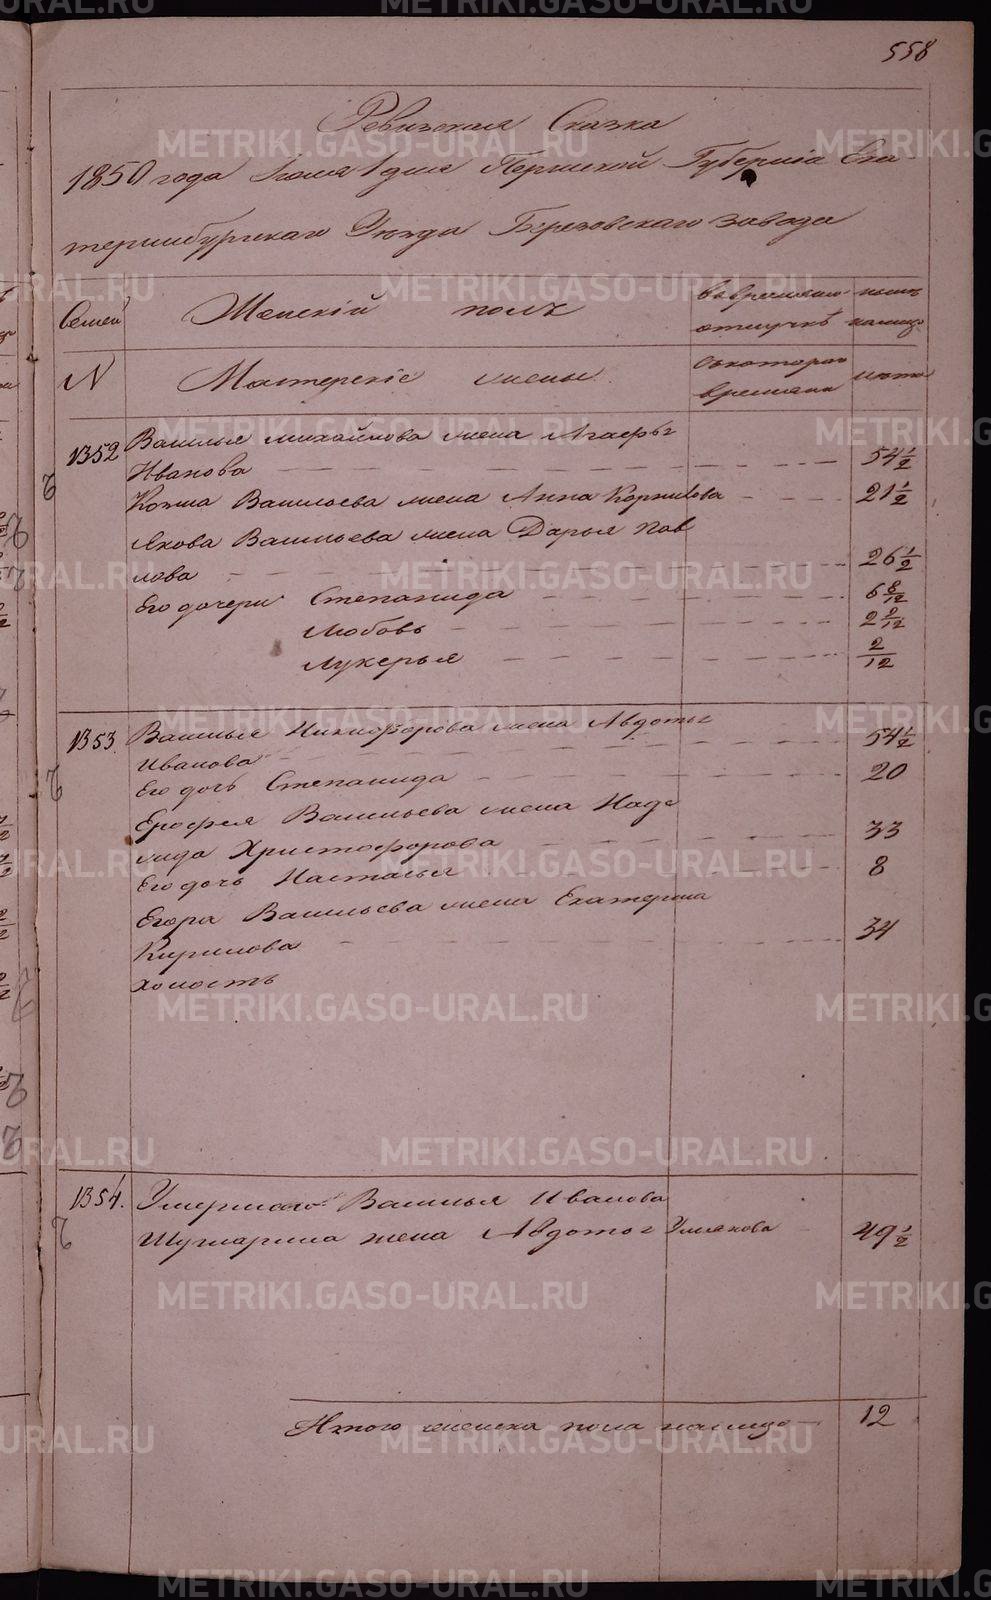 558
Ревизская Сказка
1850 года Iюля 1 дня Пермской Губернiи Ека
теринбургскаго Уѣзда Березовскаго завода
Семей Женскiй полъ во временной отлучкѣ нынѣ на лицо
N Мастерскiе жены съ котораго времени лѣта
1352 Василья Михайлова жена Агафья
Иванова 54 1/2
Козма Васильева жена Анна Корнилова 21 1/2
Якова Васильева жена Дарья Пав
лова 26 1/2
Его дочери Степанида 6 8/12
Любовь 2 9/12
Лукерья 2/12
1353 Василья Никифорова жена Авдотья
Иванова 54 1/2
Его дочь Степанида 20
Ерофея Васильева жена Наде
жда Христофорова 33
Его дочь Настасья 8
Егора Васильева жена Екатерина
Кирилова 34
холостъ
1354. Умершаго Василья Иванова
Шугмарина жена Авдотья 49 1/2
Итого женска пола на лицо 12
METRIKI.GASO-URAL.RU